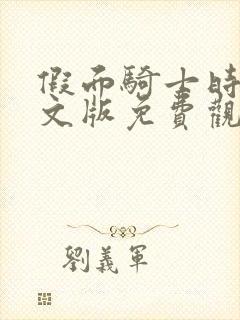 假面騎士時
文版免費觀
劉義軍